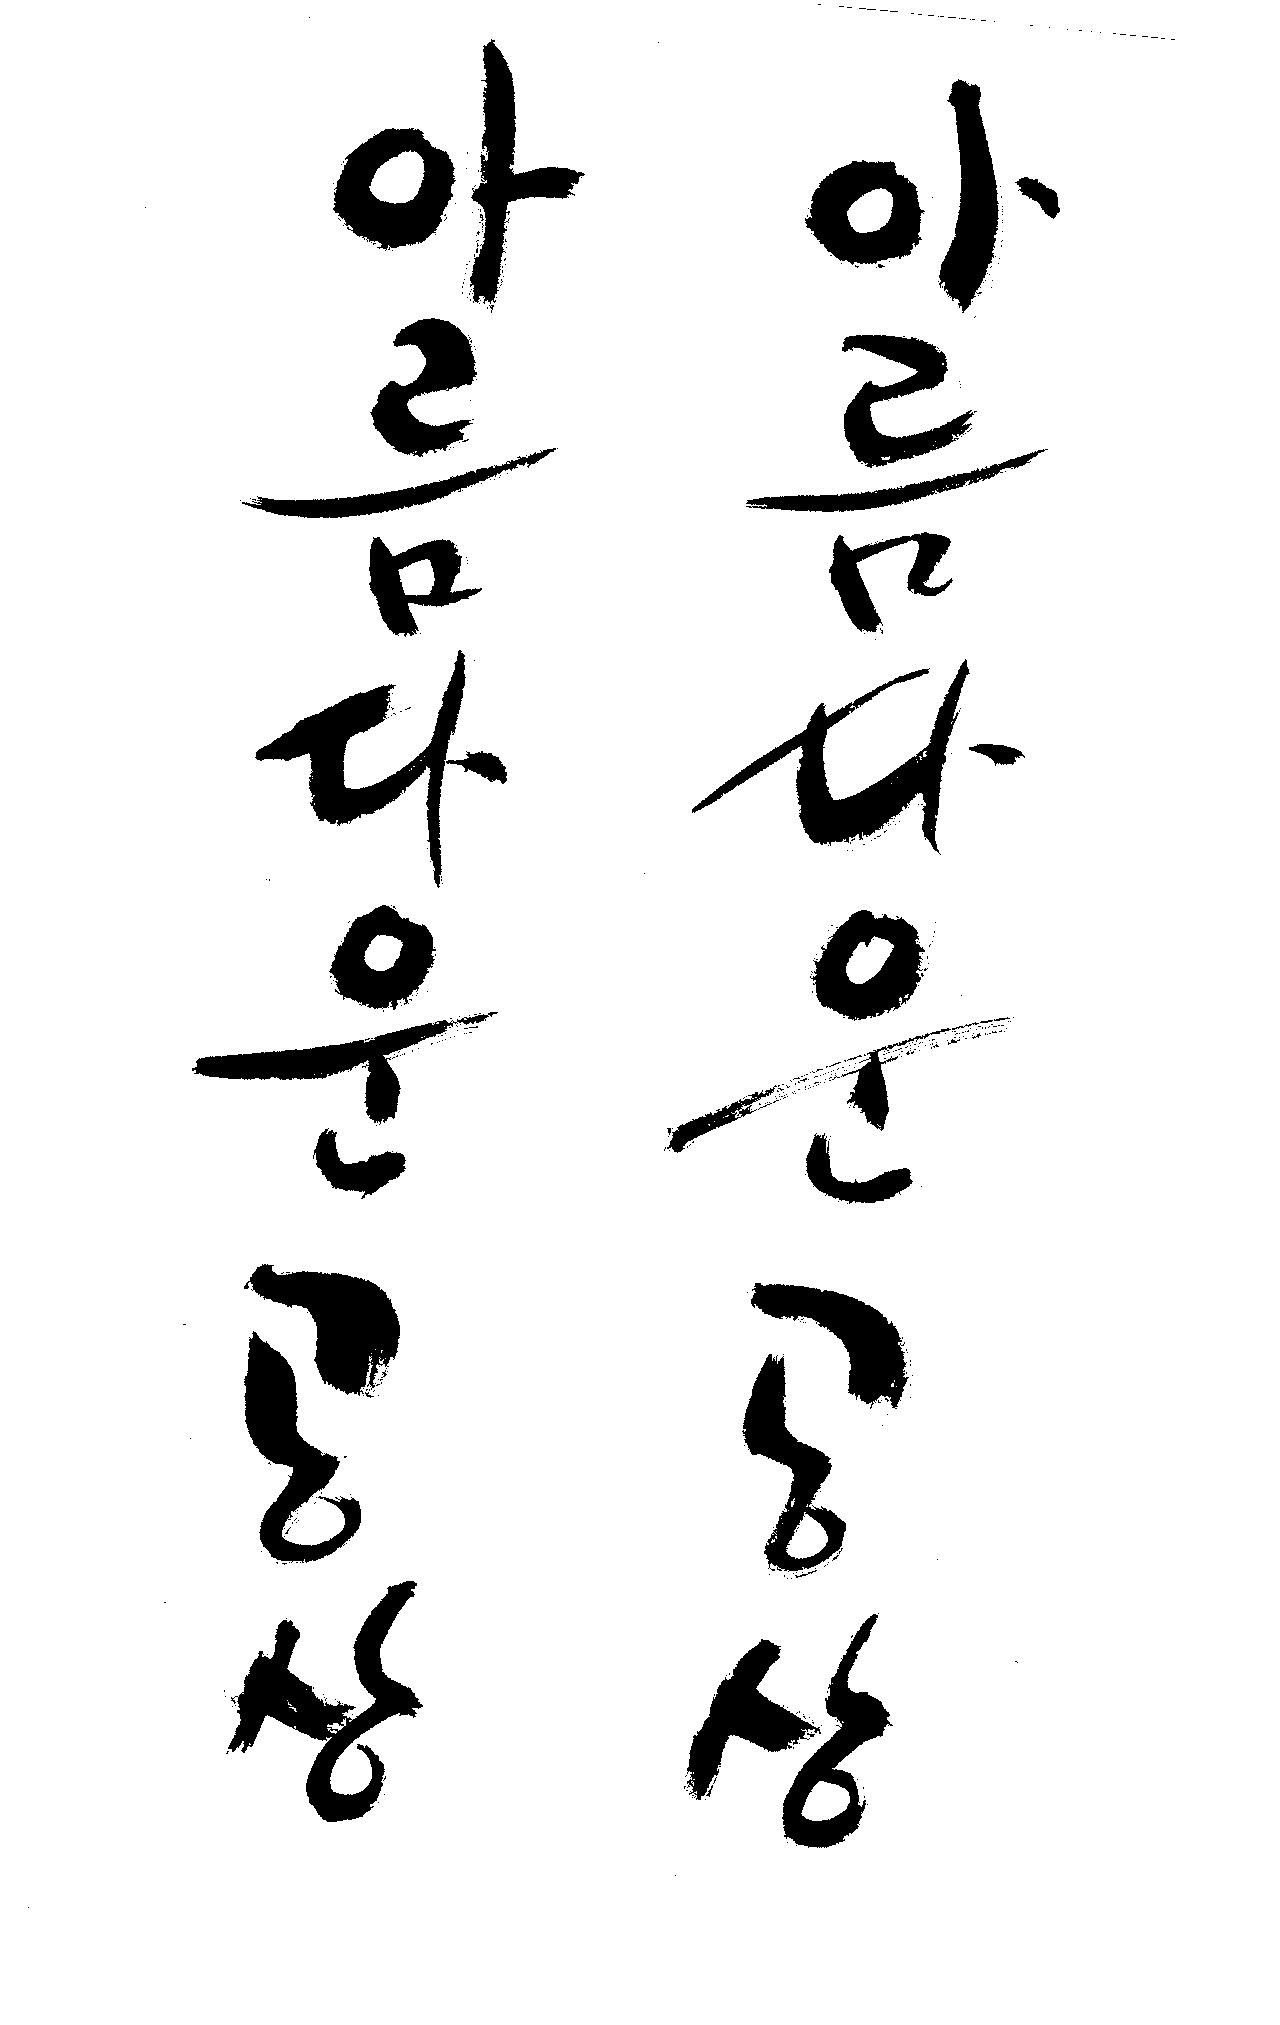 아름다운 공상
아름다운 공상